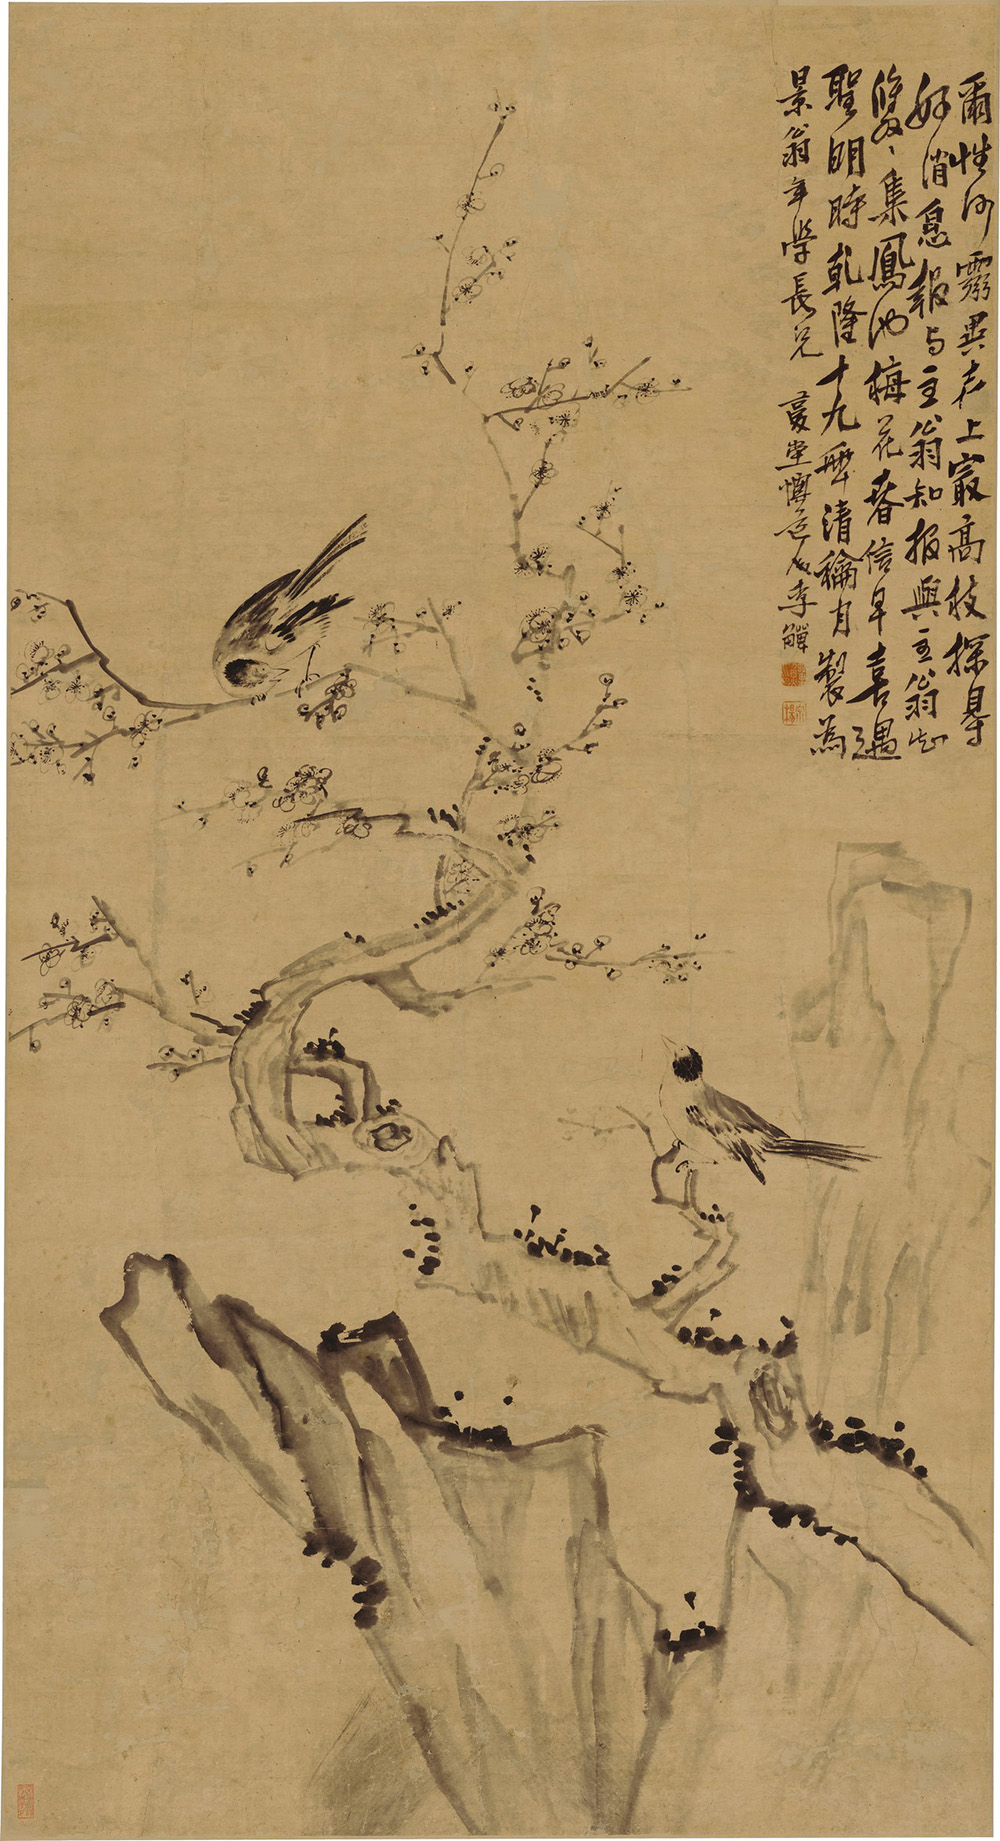 爾性何靈異上最高枝探尋
好消息報与主翁知报與主翁知
雙〻集鳳池梅花春信早喜遇
聖明時乾隆十九年清龢月製為
景翁年學長兄
復堂懊道人李鱓